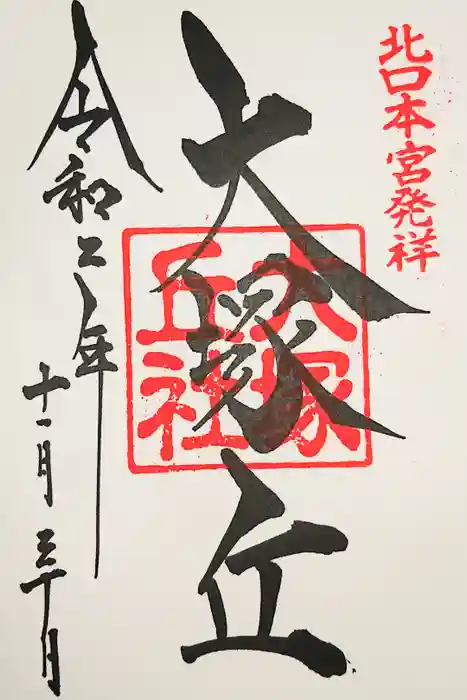 北口本宮発祥
大塚丘
大塚
丘社
令和二年
十一月三十日